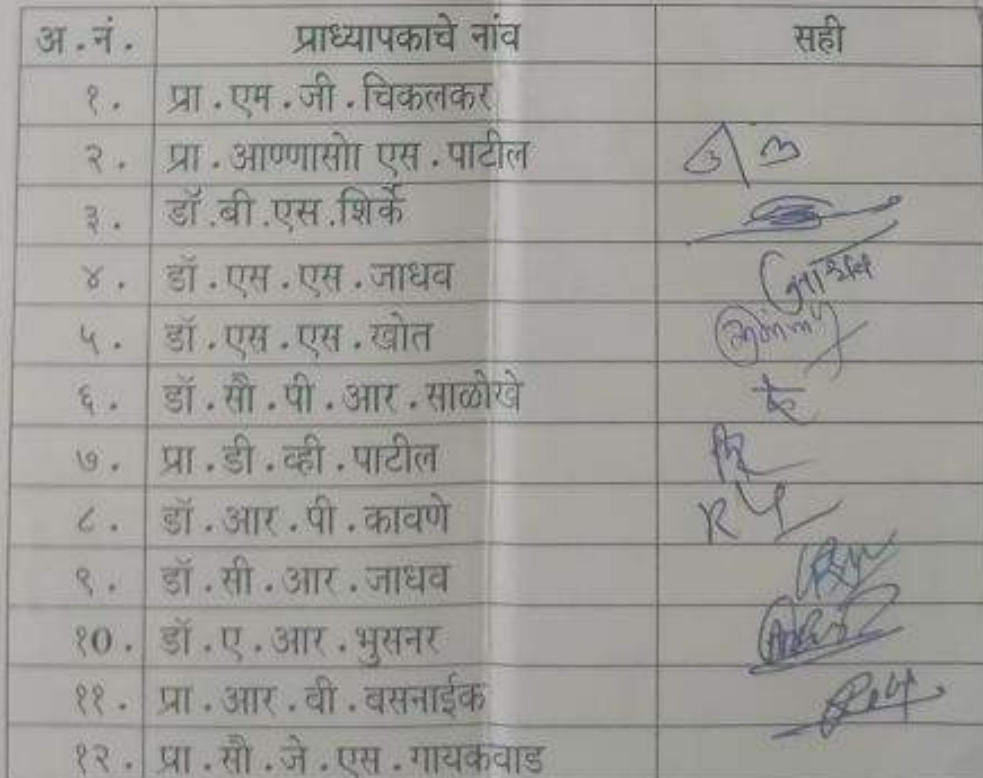 अ.नं. प्राध्यापकाचे नांव सही
१. प्रा.एम.जी.चिकलकर
२. प्रा.आण्णासो एस.पाटील
३. डॉ.बी.एस.शिर्के
४. डॉ.एस.एस.जाधव जाधव
५. डॉ.एस.एस.खोत
६. डॉ.सौ.पी.आर.साळोखे
७. प्रा.डी.व्ही.पाटील
८. डॉ.आर.पी.कावणे
९. डॉ.सी.आर.जाधव
१०. डॉ.ए.आर.भुसनर
११. प्रा.आर.बी.बसनाईक
१२. प्रा.सौ.जे.एस.गायकवाड